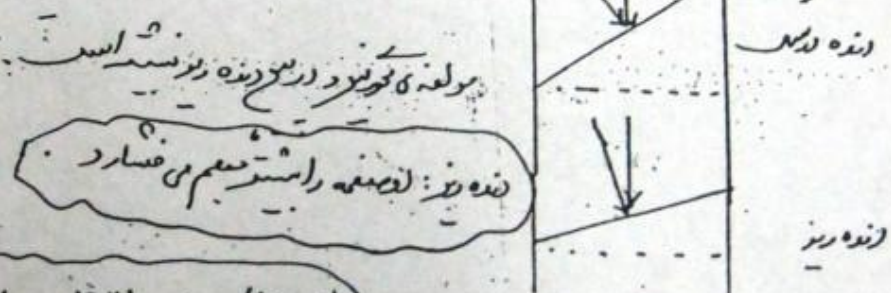 دنده درشت
مولفه ی نیرو در پیچ دنده ریز بیشتر است.
دنده ریز: دو صفحه را بیشتر بهم می فشارد
دنده ریز